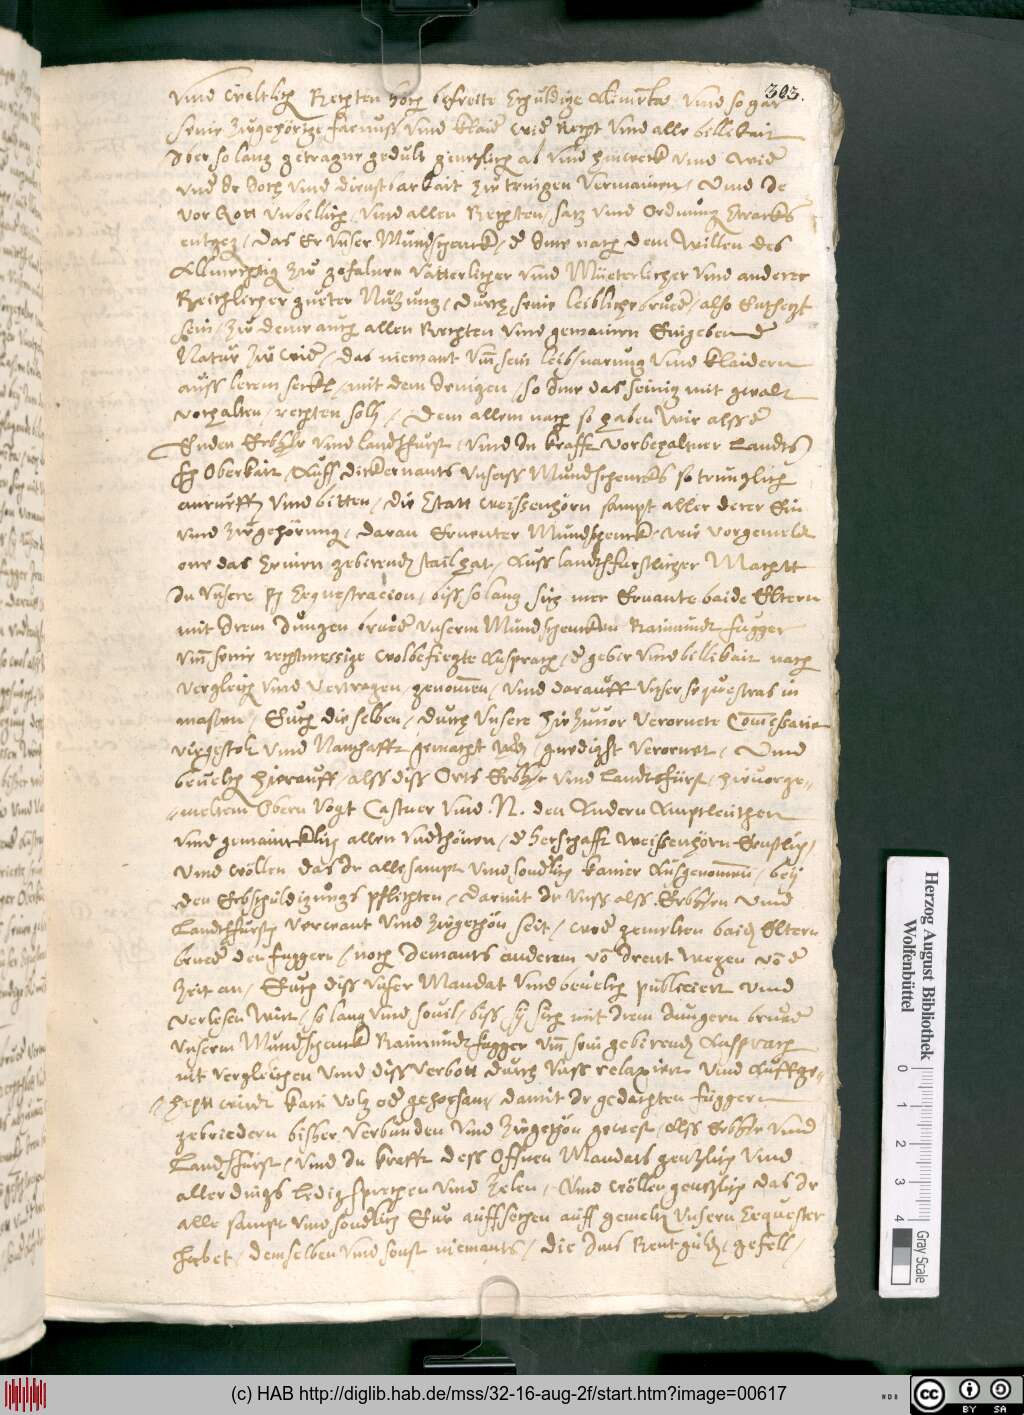 303.
vnnd Weltlich Rechten hoch befreite schuldige Aliment, vnnd so gar
seine zugehörige farnuss vnnd klaid wid Recht vnnd alle billikait
Aber so lang getragne gedult genzlich ab vnnd hinweck vnnd wid
vnd de doch vnnd dienstbarkait zu tringen vermainen, Vnnd de
vor Gott vnbillich, vnnd allen Rechten, satz vnnd Ordnung
entgeg, das Er vnser Mundschenck, d Ime nach dem Willen des
Allmechtig zu gefalnen Vätterlicher vnnd Müeterlicher vnnd anderer
Reichlicher gueter Nutzung, durch seine leibliche brued, also Entsezt
sein, zu deme auch allen Rechten vnnd gemainen Eingebend
Natur zu wid, das niemant vm sein leibsnarung vnnd klaidern
auss lerem seckl, mit dem Jenigen, so Ime das seinig mit gwalt
vorhalten, rechten soll, Dem allem nach so haben wir alss d
Enden Erbherr vnnd landtsfürst, vnnd In krafft vorbehaltner Landts
Oberkait, Auff dickernants vnserss Mundschencks so trunglich
anrueff vnnd bitten, die Statt Weissenhorn sampt aller derer Ein
vnnd zugehörung, daran Ernenter Mundschenck, wie vorgemelt
one das seinen geberend stail hat, Auss landtsfürstlicher Machtt
In vnsere Sequestracion, biss so lang sich mer Ernante baide Eltern
mit Irem Jungen brued vnserm Mundschencken Raimundt Fugger
vm seine rechtmessige wolbefiegte Ansprach, d gebir vnnd billikait nach
vergleich vnnd vertragen, genomen, vnnd darauff vnser sequestras in
massen, Euch dieselben, durch vnsere hiezuuor verornete Comessarien
virgestelt vnnd Namhafft gemacht, gnedigst verornet, Vnnd
beuelch hierauff, alss diss Orts Erbherr vnnd Landtsfürst, hieuorge-
-meltem Obern Vogt Castner vnnd N. den Andern Amptleuthen
vnnd gemaincklich allen vndthonen, d Herschafft Weissenhorn Ernstlich,
vnnd wöllen das Ir alle sampt vnnd sondlich kainer Aussgenomen, bey
den Erbschuldigungs pflichten, darmit Ir vnss alss Erbherrn vnnd
Landtsfürsten verwant vnnd zugethon seit, wed gemelten baid Eltern
brued den Fuggern, noch Jemants anderem von Irent wegen von d
Zeit an, Euch diss vnser Mandat vnnd beuelch publiciert vnnd
verlesen wirt, so lang vnnd souil, biss sy sich mit Irem Jungern brued
vnserm Mundschenck Raimundt Fugger vm sein geberend Ansprach
nit vergleichen vnnd diss verbott durch vnss relaxiert vnnd Auffge-
-hept wurdt kain volg od gehorsam, damit Ir gedachten Fuggern
gebriedern bissher verbunden vnnd zugethon gewest, Alss Erbherr vnnd
Landtsfürst, vnnd In krafft dess Offnen Mandats genzlich vnnd
allerdings Ledig sprechen vnnd zelen, Vnnd wöllen genzlich das Ir
alle sampt vnnd sondlich Eur auffsehen auff gemelt vnsern Sequester
habet, demselben vnnd sonst niemants, die Ims Rent, gült, gefell,
Herzog August Bibliothek
Wolfenbüttel
0 1 2 3 4
Gray Scale
(c) HAB http://diglib.hab.de/mss/32-16-aug-2f/start.htm?image=00617
WDB
cc BY SA